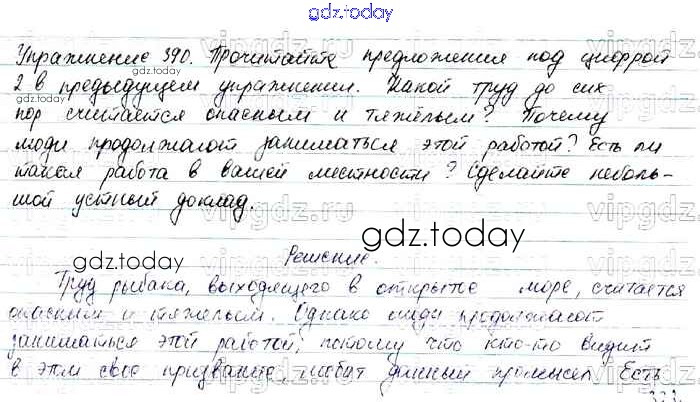 gdz.today
Упражнение 390. Прочитайте предложения под цифрой
gdz.today
2 в предыдущем упражнении. Какой труд до сих
пор считается опасным и тяжёлым? Почему
люди продолжают заниматься этой работой? Есть ли
такая работа в вашей местности? Сделайте неболь-
шой устный доклад.
gdz.today
Решение.
Труд рыбака, выходящего в открытое море, считается
опасным и тяжелым. Однако люди продолжают
заниматься этой работой, потому что кто-то видит
в этом свое призвание, любит данный промысел. Есть
gdz.today